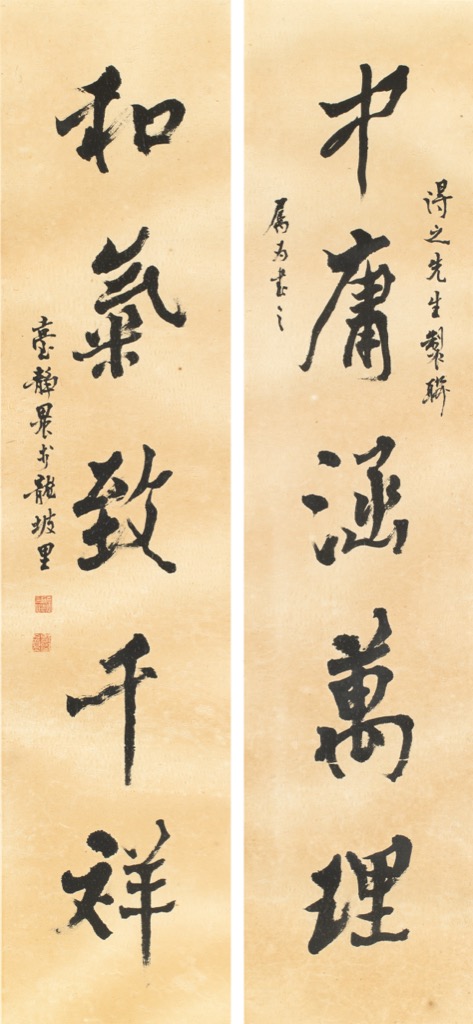 得之先生製聯
中庸涵萬理
属为書之
和氣致千祥
臺静農於龍坡里